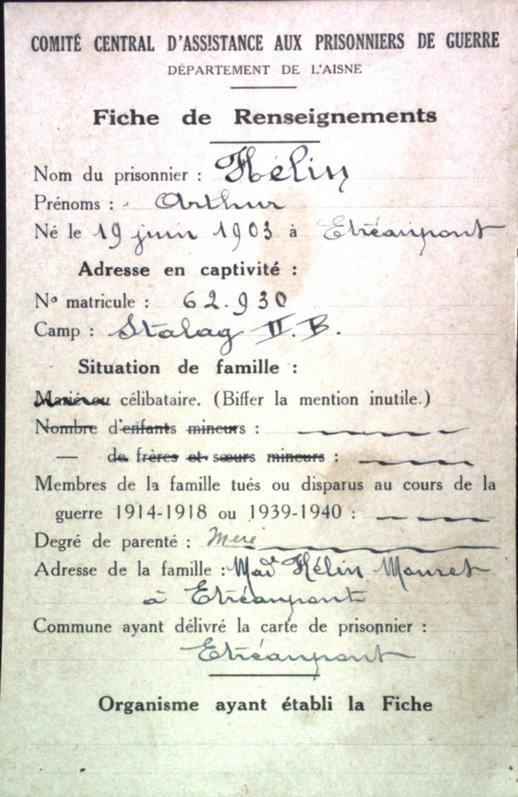 COMITÉ CENTRAL D'ASSISTANCE AUX PRISONNIERS DE GUERRE
DÉPARTEMENT DE L'AISNE
Fiche de Renseignements
Nom du prisonnier : Hélin
Prénoms : Arthur
Né le 19 juin 1903 à Etréaupont
Adresse en captivité :
No matricule : 62.930
Camp : Stalag II.B.
Situation de famille :
Marié ou célibataire. (Biffer la mention inutile.)
Nombre d'enfants mineurs :
— de frères et sœurs mineurs :
Membres de la famille tués ou disparus au cours de la
guerre 1914-1918 ou 1939-1940 :
Degré de parenté : Mère
Adresse de la famille : Mad. Hélin Mouret
à Etréaupont
Commune ayant délivré la carte de prisonnier :
Etréaupont
Organisme ayant établi la Fiche